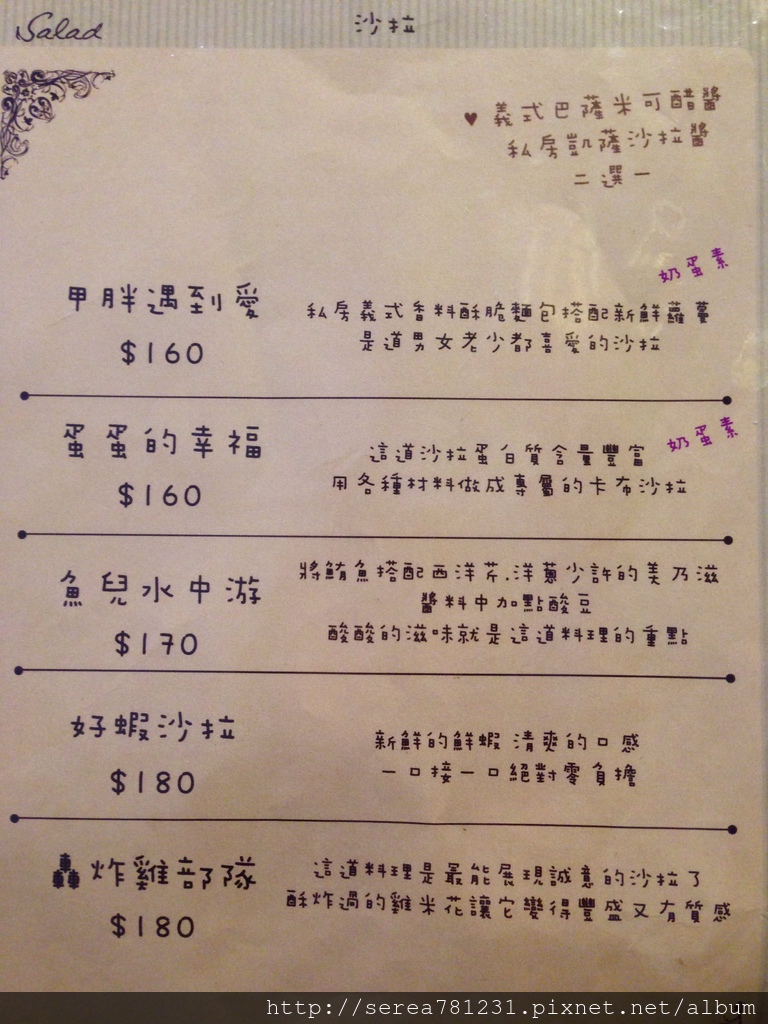 Salad
沙拉
♥ 義式巴薩米可醋醬
私房凱薩沙拉醬
二選一
奶蛋素
甲胖遇到愛
$160
私房義式香料酥脆麵包搭配新鮮蘿蔓
是道男女老少都喜愛的沙拉
奶蛋素
蛋蛋的幸福
$160
這道沙拉蛋白質含量豐富
用各種材料做成專屬的卡布沙拉
魚兒水中游
$170
將鮪魚搭配西洋芹.洋蔥少許的美乃滋
醬料中加點酸豆
酸酸的滋味就是這道料理的重點
好蝦沙拉
$180
新鮮的鮮蝦 清爽的口感
一口接一口絕對零負擔
轟炸雞部隊
$180
這道料理是最能展現誠意的沙拉了
酥炸過的雞米花讓它變得豐盛又有質感
http://serea781231.pixnet.net/album